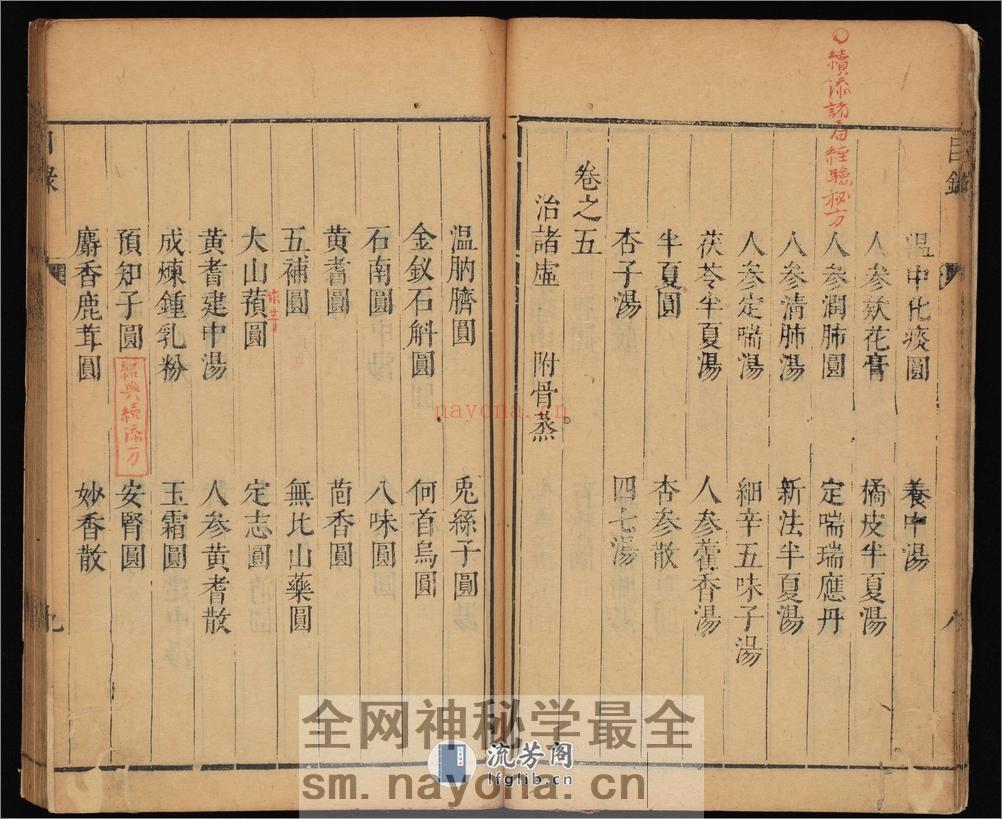 續添諸局經驗秘方
目錄
温中化痰圓　養中湯
人参欵花膏　橘皮半夏湯
人参潤肺圓　定喘瑞應丹
人参清肺湯　新法半夏湯
人参定喘湯　細辛五味子湯
茯苓半夏湯　人参藿香湯
半夏圓　杏参散
杏子湯　四七湯
卷之五
治諸虚　附骨蒸
温肭臍圓　兎絲子圓
金釵石斛圓　何首烏圓
石南圓　八味圓
黄耆圓　茴香圓
五補圓　無比山藥圓
大山蕷圓　定志圓
黄耆建中湯　人参黄耆散
成煉鍾乳粉　玉霜圓
預知子圓　安腎圓
紹興續添方
麝香鹿茸圓　妙香散
目錄
九
nayona.cn
全网神秘学最全
流芳阁
lfglib.cn
sm.nayona.cn